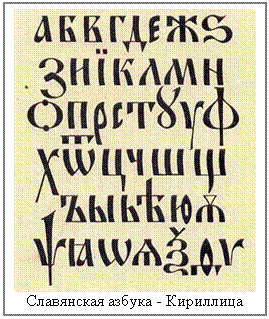 А Б В Г Д Е Ж Ѕ
З И Ї К Л М Н
О П Р С Т Ꙋ У Ф
Х Ѿ Ц Ч Ш Щ
Ъ Ы Ь Ѣ Ю Ѫ
Ѱ Ꙗ Ѡ Ѧ Ѯ Ѳ Ѵ
Славянская азбука - Кириллица